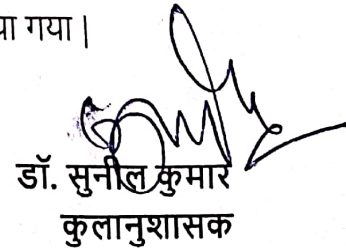 गया।
डॉ. सुनील कुमार
कुलानुशासक